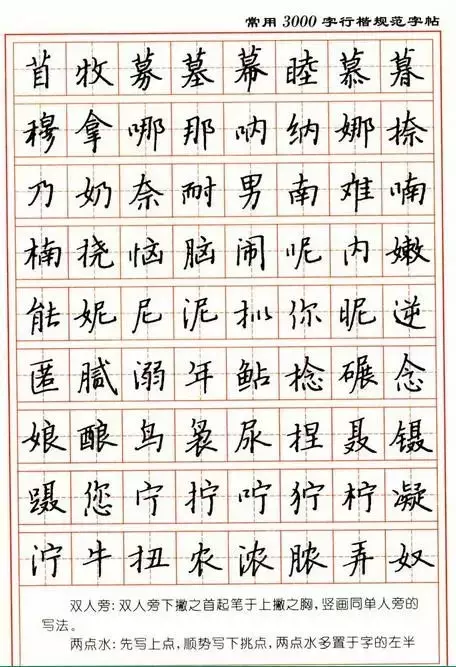 常用3000字行楷规范字帖
苜牧募墓幕睦慕暮
穆拿哪那呐纳娜捺
乃奶奈耐男南难喃
楠挠恼脑闹呢内嫩
能妮尼泥拟你昵逆
匿腻溺年鲇捻碾念
娘酿鸟袅尿捏聂镊
蹑您宁拧咛狞柠凝
泞牛扭农浓脓弄奴
双人旁:双人旁下撇之首起笔于上撇之胸,竖画同单人旁的
写法。
两点水:先写上点,顺势写下挑点,两点水多置于字的左半